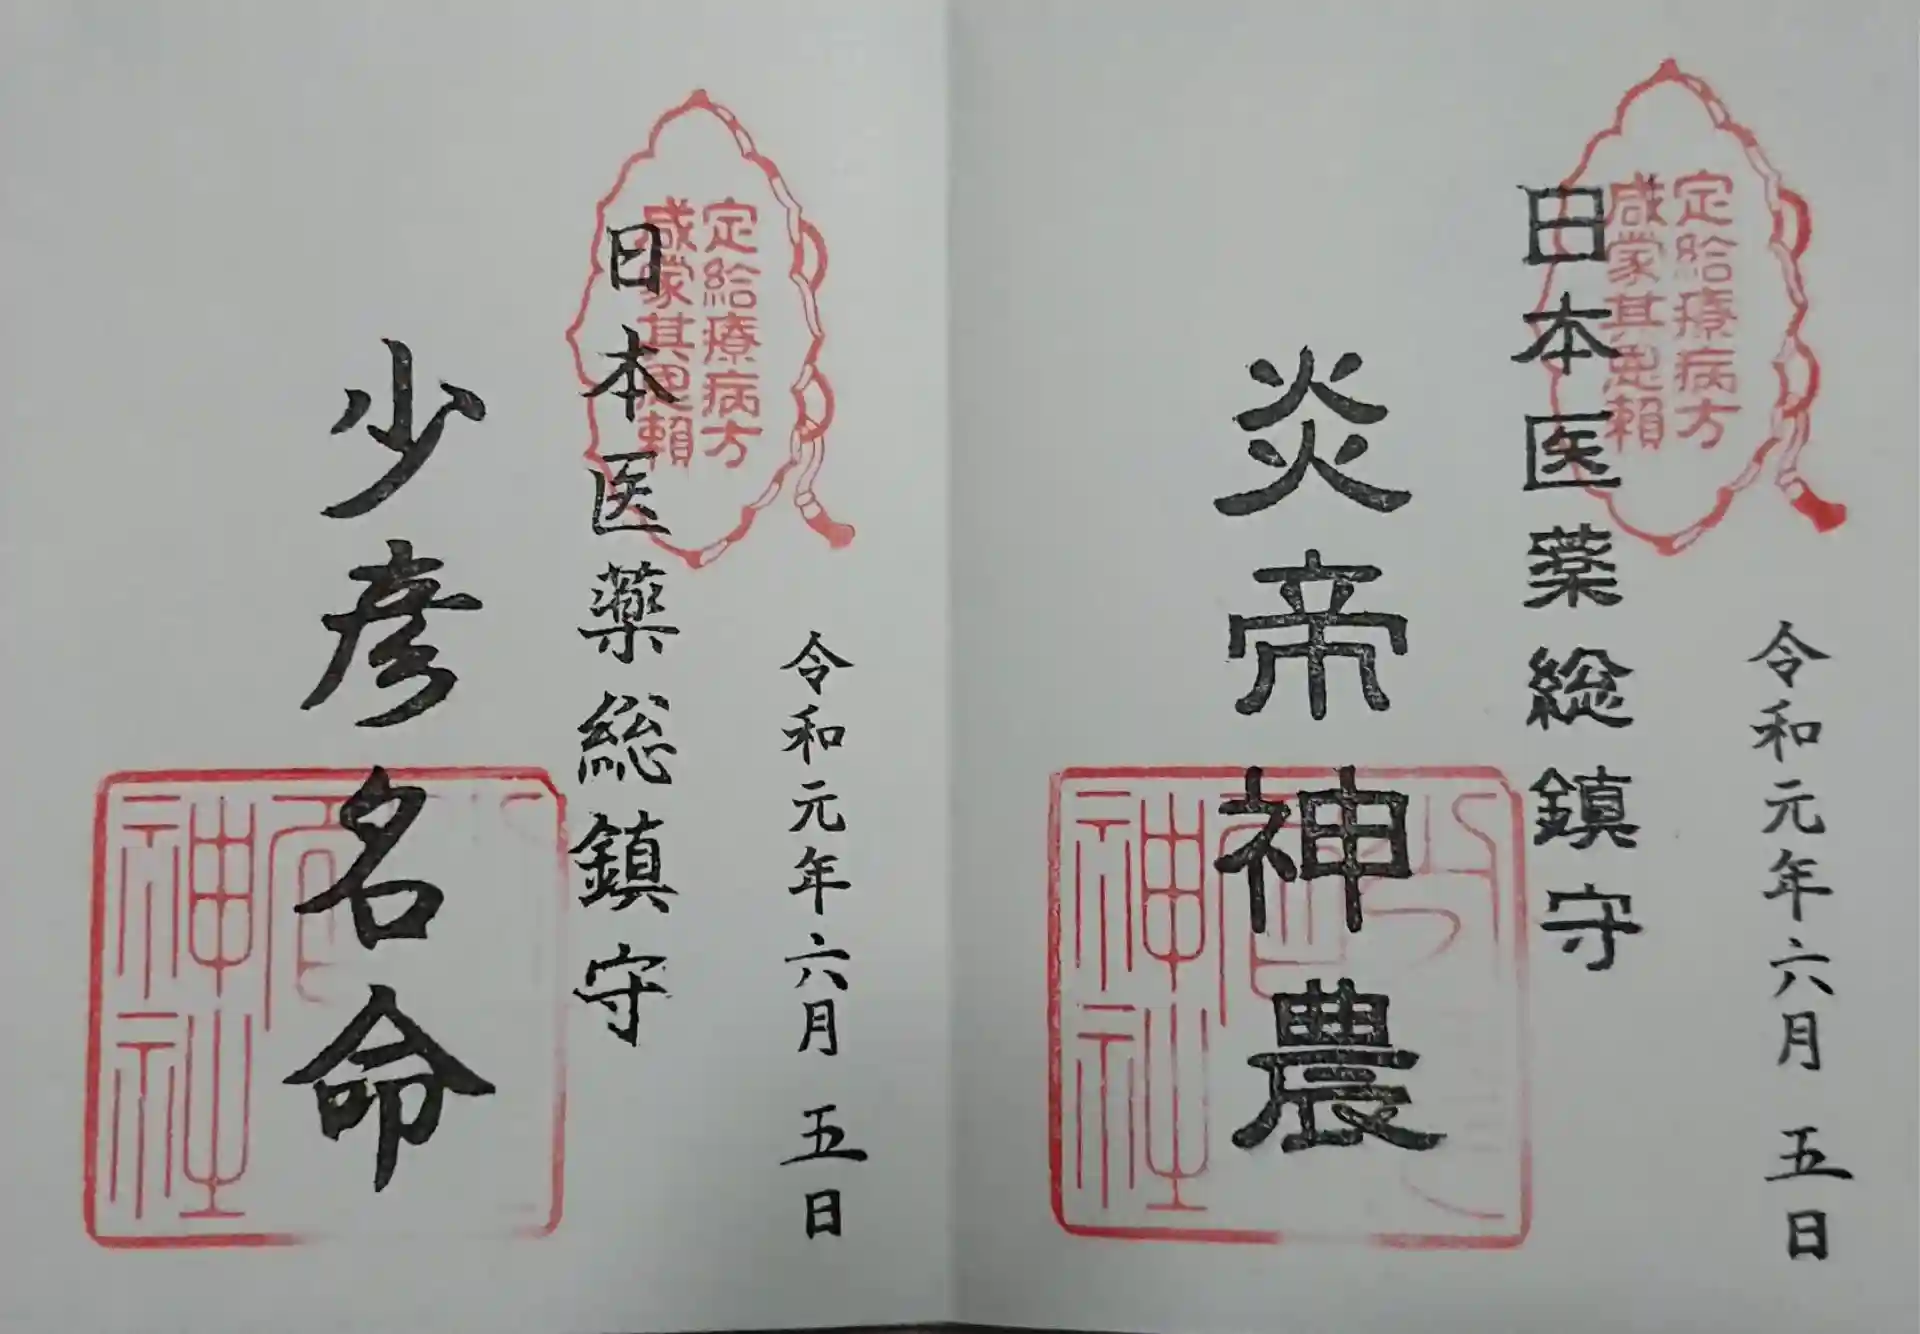 令和元年六月五日
定給療病方
咸蒙其恩頼
日本医薬総鎮守
炎帝神農
神社
令和元年六月五日
定給療病方
咸蒙其恩頼
日本医薬総鎮守
少彦名命
神社